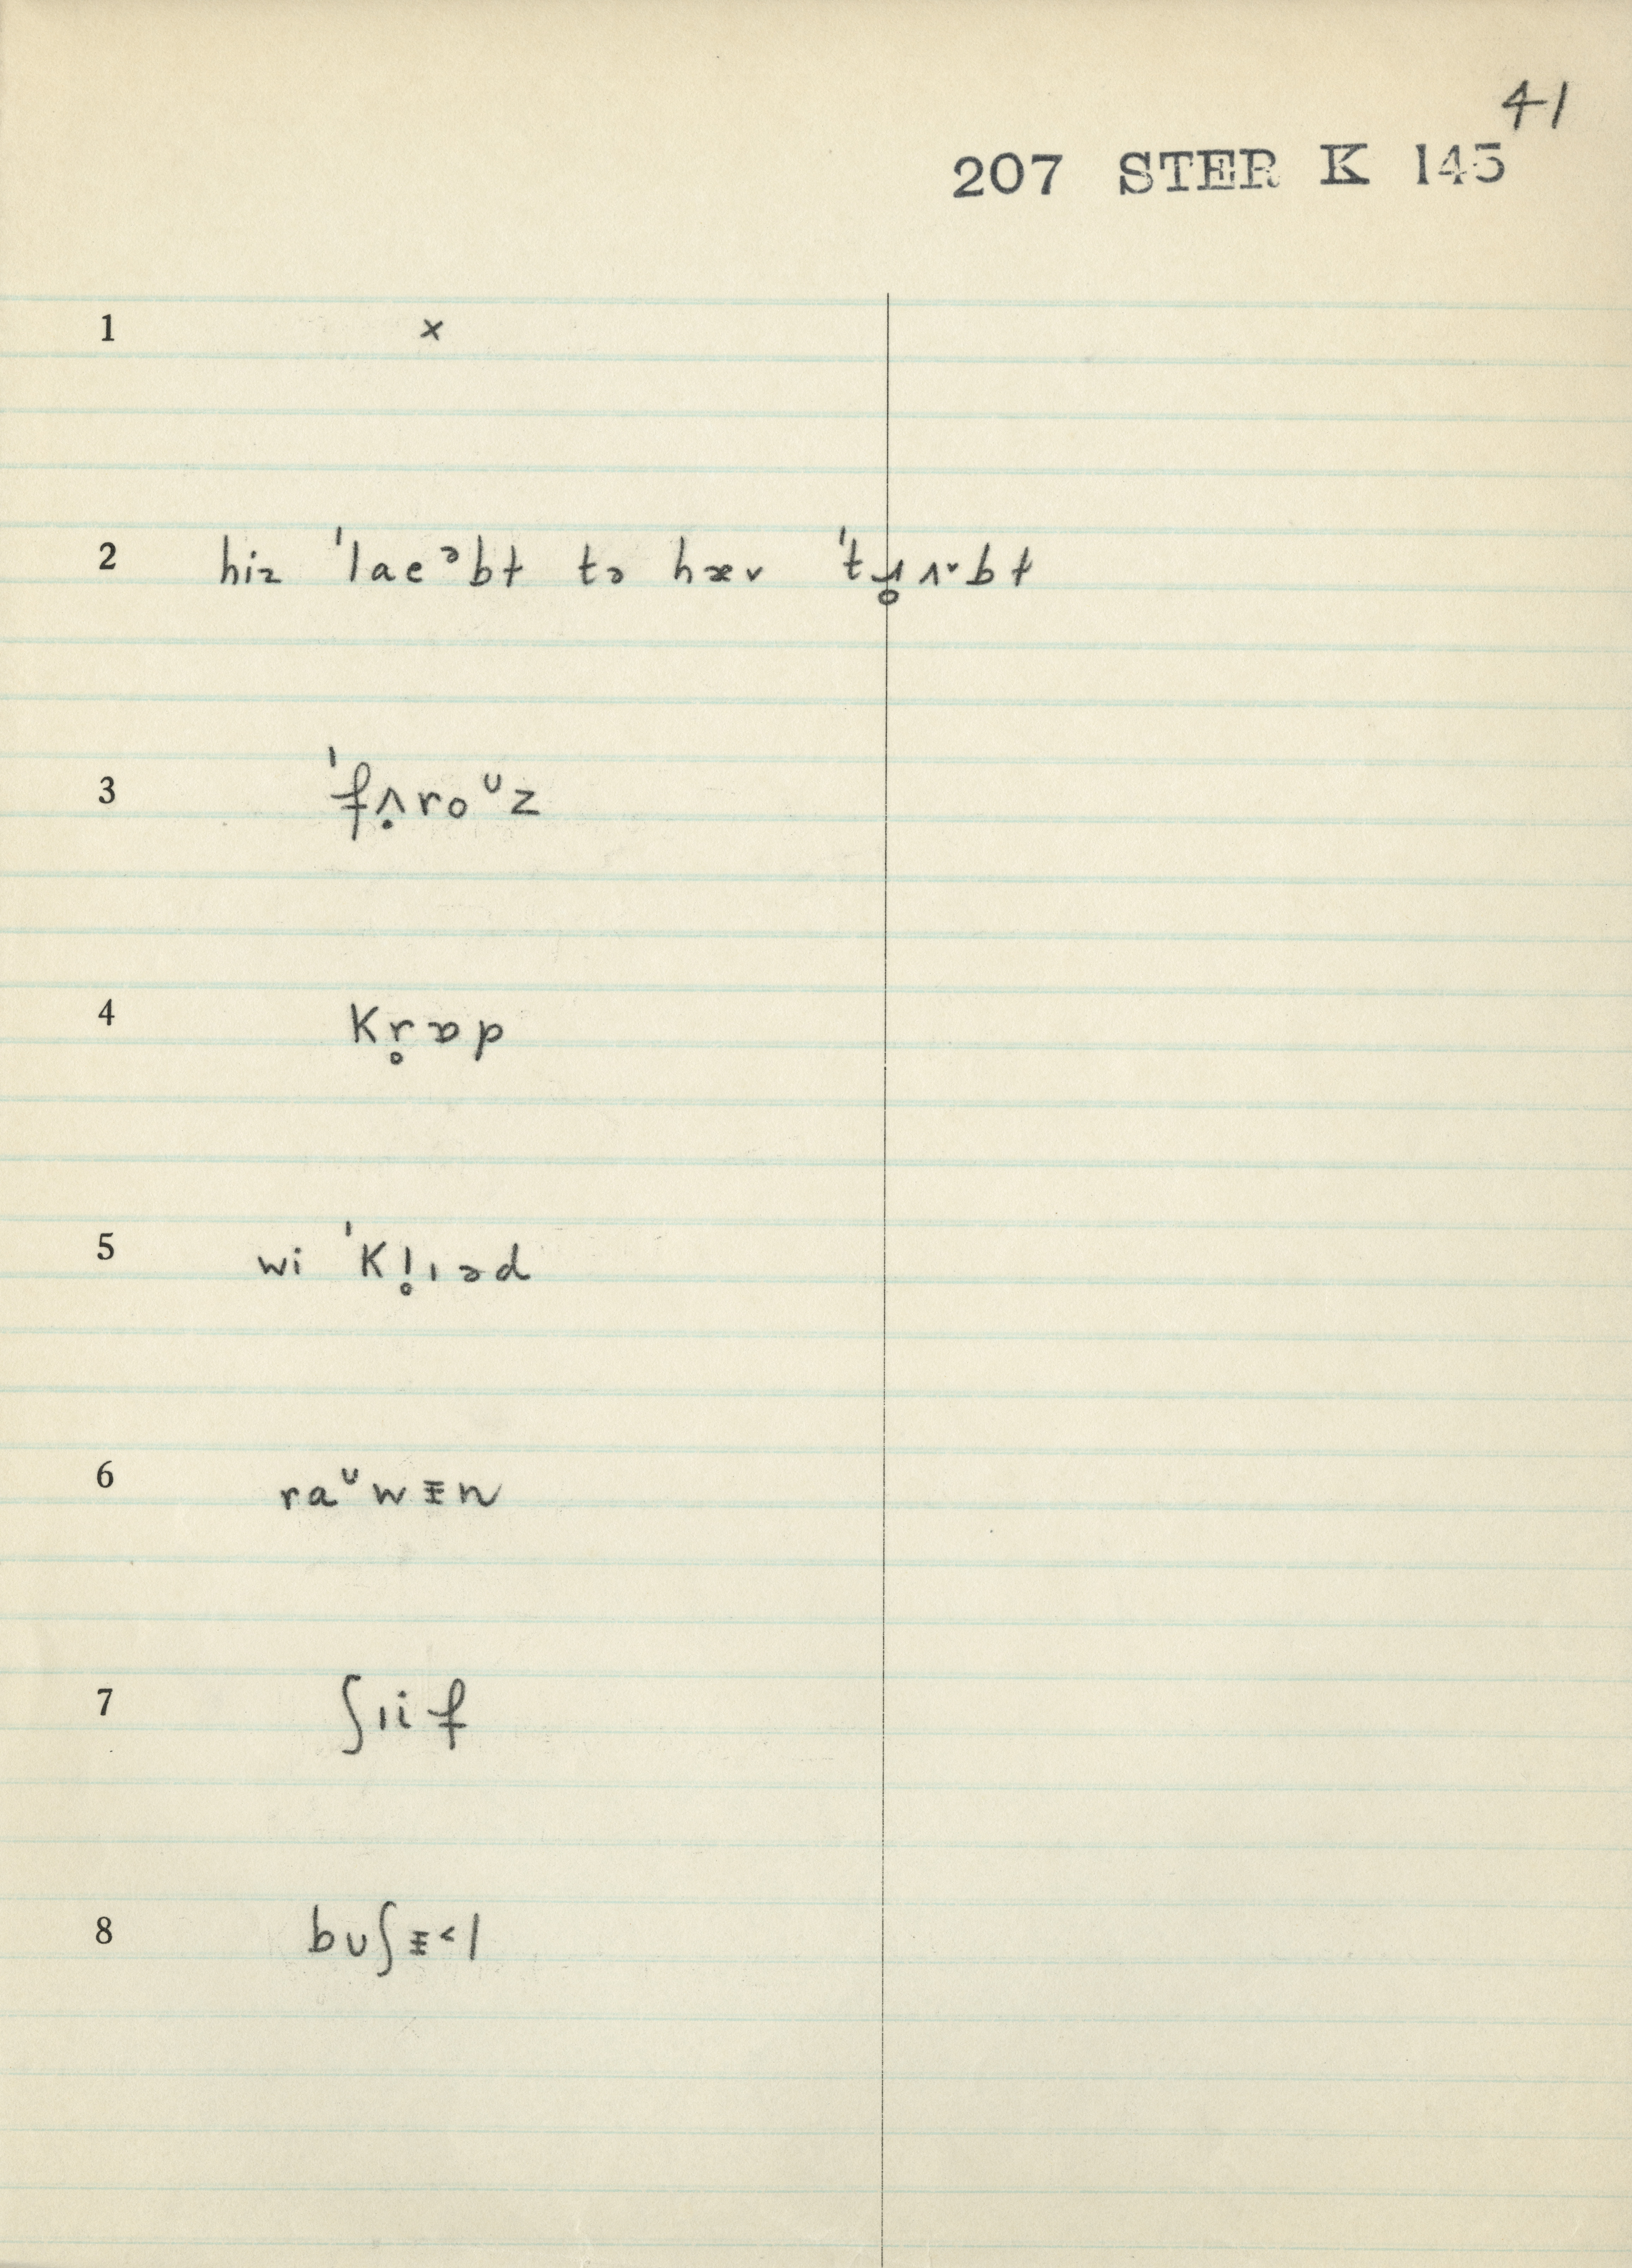 41
207 STER K 145
1 ×
2 hiz ˈlaeᵊbt tə hæv ˈtɹ̥ʌ˅bt
3 ˈfʌ̣roᶷz
4 kr̥ɒp
5 wi ˈkl̥ɪəd
6 raᶷwᵻn
7 ʃɪif
8 bʊʃᵻ˂l